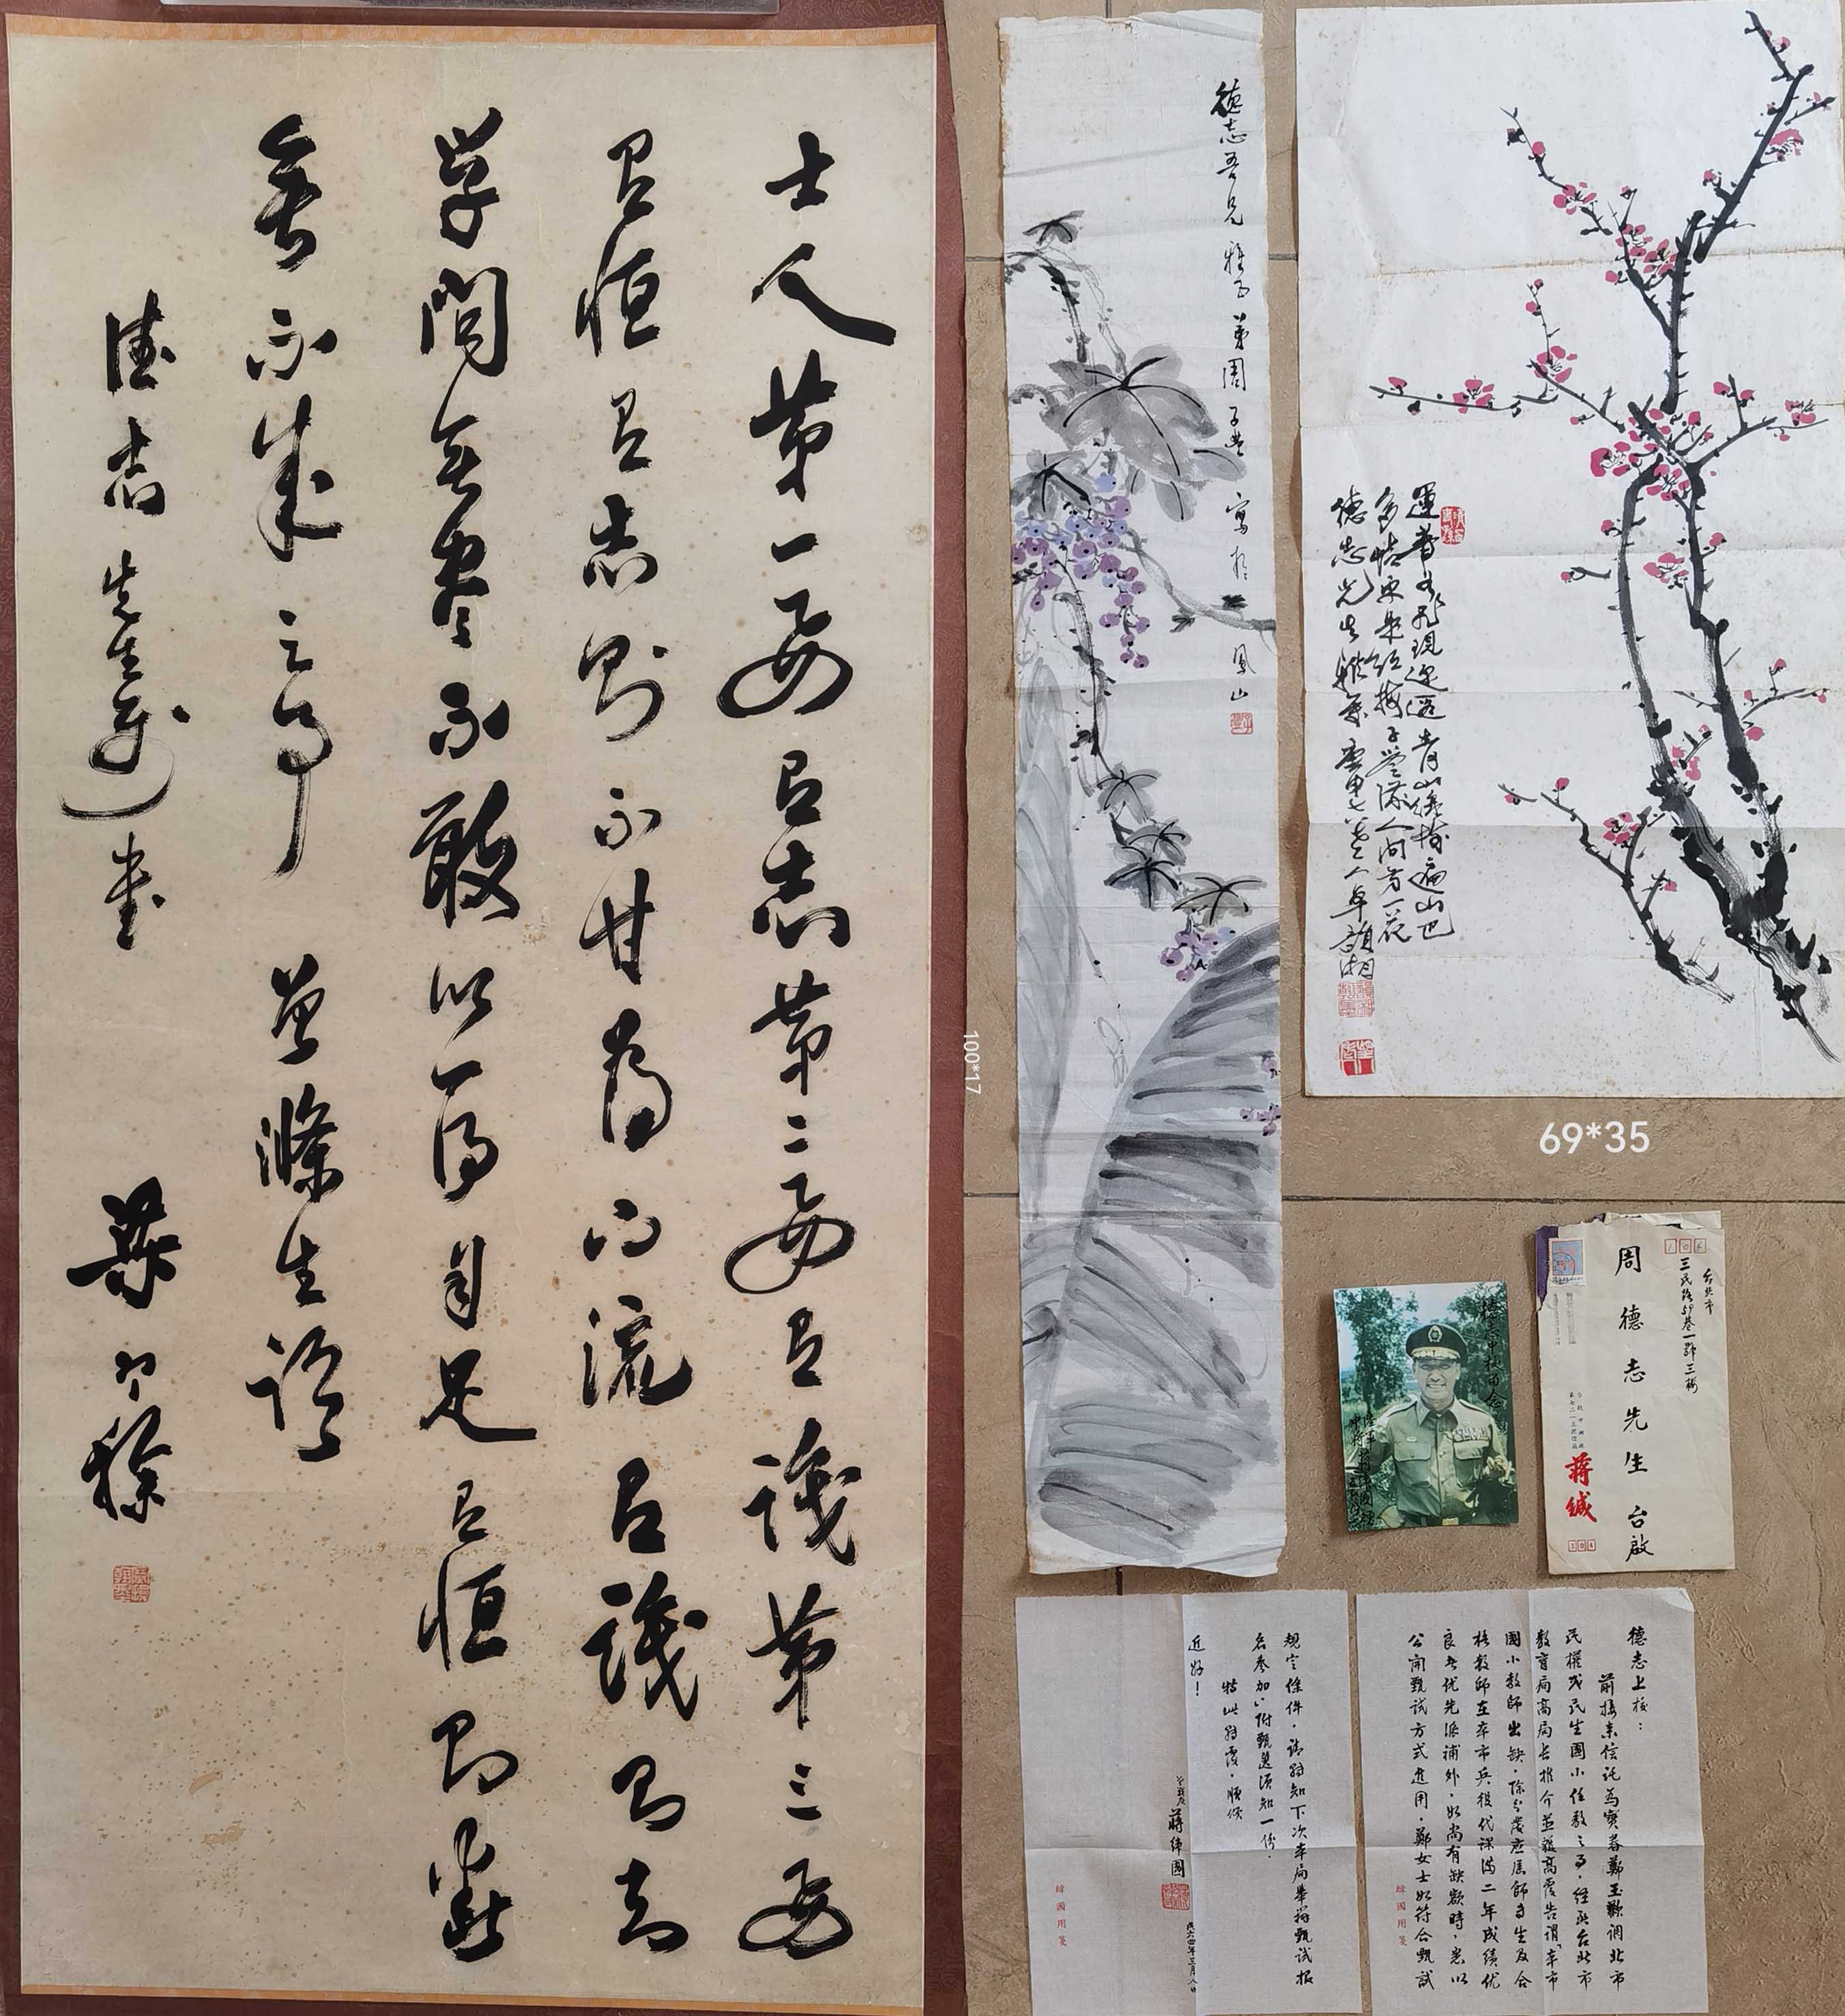 士人第一要有志第二要有識第三要
有恒有志則不甘為下流有識則知
学問無盡不敢以一得自足有恒則斷
無不成之事 曾滌生語
德志先生 書
梁
德志吾兄 雅正 弟周子豐 寫於 鳳山
青山 遍山
多 紅梅 人間 一花
德志先生雅
100*17
69*35
德志中校留念
陸軍
中將蔣緯國贈
104
台北市
三民路59巷一號三樓
周德志先生台啟
蔣緘
104
德志上校：
前接来信託為寶眷鄭玉歡調北市
民權或民生國小任教之事，經函台北市
教育局高局長推介並獲高覆告謂「本市
國小教師出缺，除分發應屆師專生及合
格教師在本市兵役代課滿二年成績優
良者優先派補外，如尚有缺額時，悉以
公開甄試方式進用，鄭女士如符合甄試
緯國用箋
規定條件，請轉知下次本局舉辦甄試報
名參加」附甄選須知一份。
特此轉覆，順候
近好！
蔣緯國
民六四年三月八日
緯國用箋